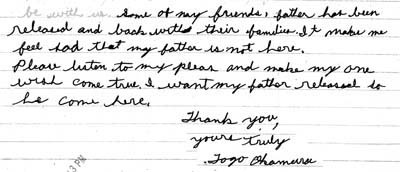 be with us. Some of my friends, father has been
released and back with their families. It make me
feel sad that my father is not here.
Please listen to my pleas and make my one
wish come true. I want my father released so
he come here.
Thank you,
yours truly
Togo
3 PM